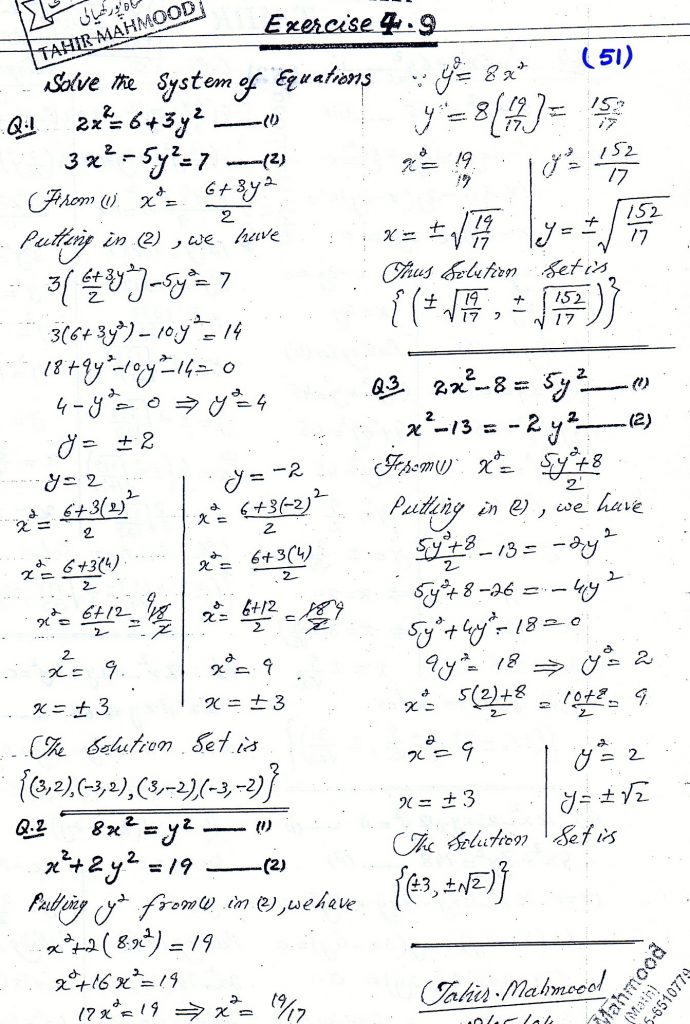 TAHIR MAHMOOD
Exercise 4.9
(51)
Solve the System of Equations
Q.1 2x² = 6 + 3y² —— (1)
3x² - 5y² = 7 —— (2)
From (1) x² = (6 + 3y²)/2
Putting in (2), we have
3((6+3y²)/2) - 5y² = 7
3(6+3y²) - 10y² = 14
18 + 9y² - 10y² - 14 = 0
4 - y² = 0 ⇒ y² = 4
y = ±2
y = 2 | y = -2
x² = (6+3(2)²)/2 | x² = (6+3(-2)²)/2
x² = (6+3(4))/2 | x² = (6+3(4))/2
x² = (6+12)/2 = 18/2 9 | x² = (6+12)/2 = 18/2 9
x² = 9 | x² = 9
x = ±3 | x = ±3
The Solution Set is
{(3,2),(-3,2),(3,-2),(-3,-2)}
Q.2 8x² = y² —— (1)
x² + 2y² = 19 —— (2)
Putting y² from (1) in (2), we have
x² + 2(8x²) = 19
x² + 16x² = 19
17x² = 19 ⇒ x² = 19/17
∵ y² = 8x²
y² = 8(19/17) = 152/17
x² = 19/17 | y² = 152/17
x = ±√(19/17) | y = ±√(152/17)
Thus Solution Set is
{(±√(19/17), ±√(152/17))}
Q.3 2x² - 8 = 5y² —— (1)
x² - 13 = -2y² —— (2)
From (1) x² = (5y²+8)/2
Putting in (2), we have
(5y²+8)/2 - 13 = -2y²
5y² + 8 - 26 = -4y²
5y² + 4y² - 18 = 0
9y² = 18 ⇒ y² = 2
x² = (5(2)+8)/2 = (10+8)/2 = 9
x² = 9 | y² = 2
x = ±3 | y = ±√2
The Solution Set is
{(±3, ±√2)}
Tahir Mahmood
Mahmood
(Math)
5-6510779